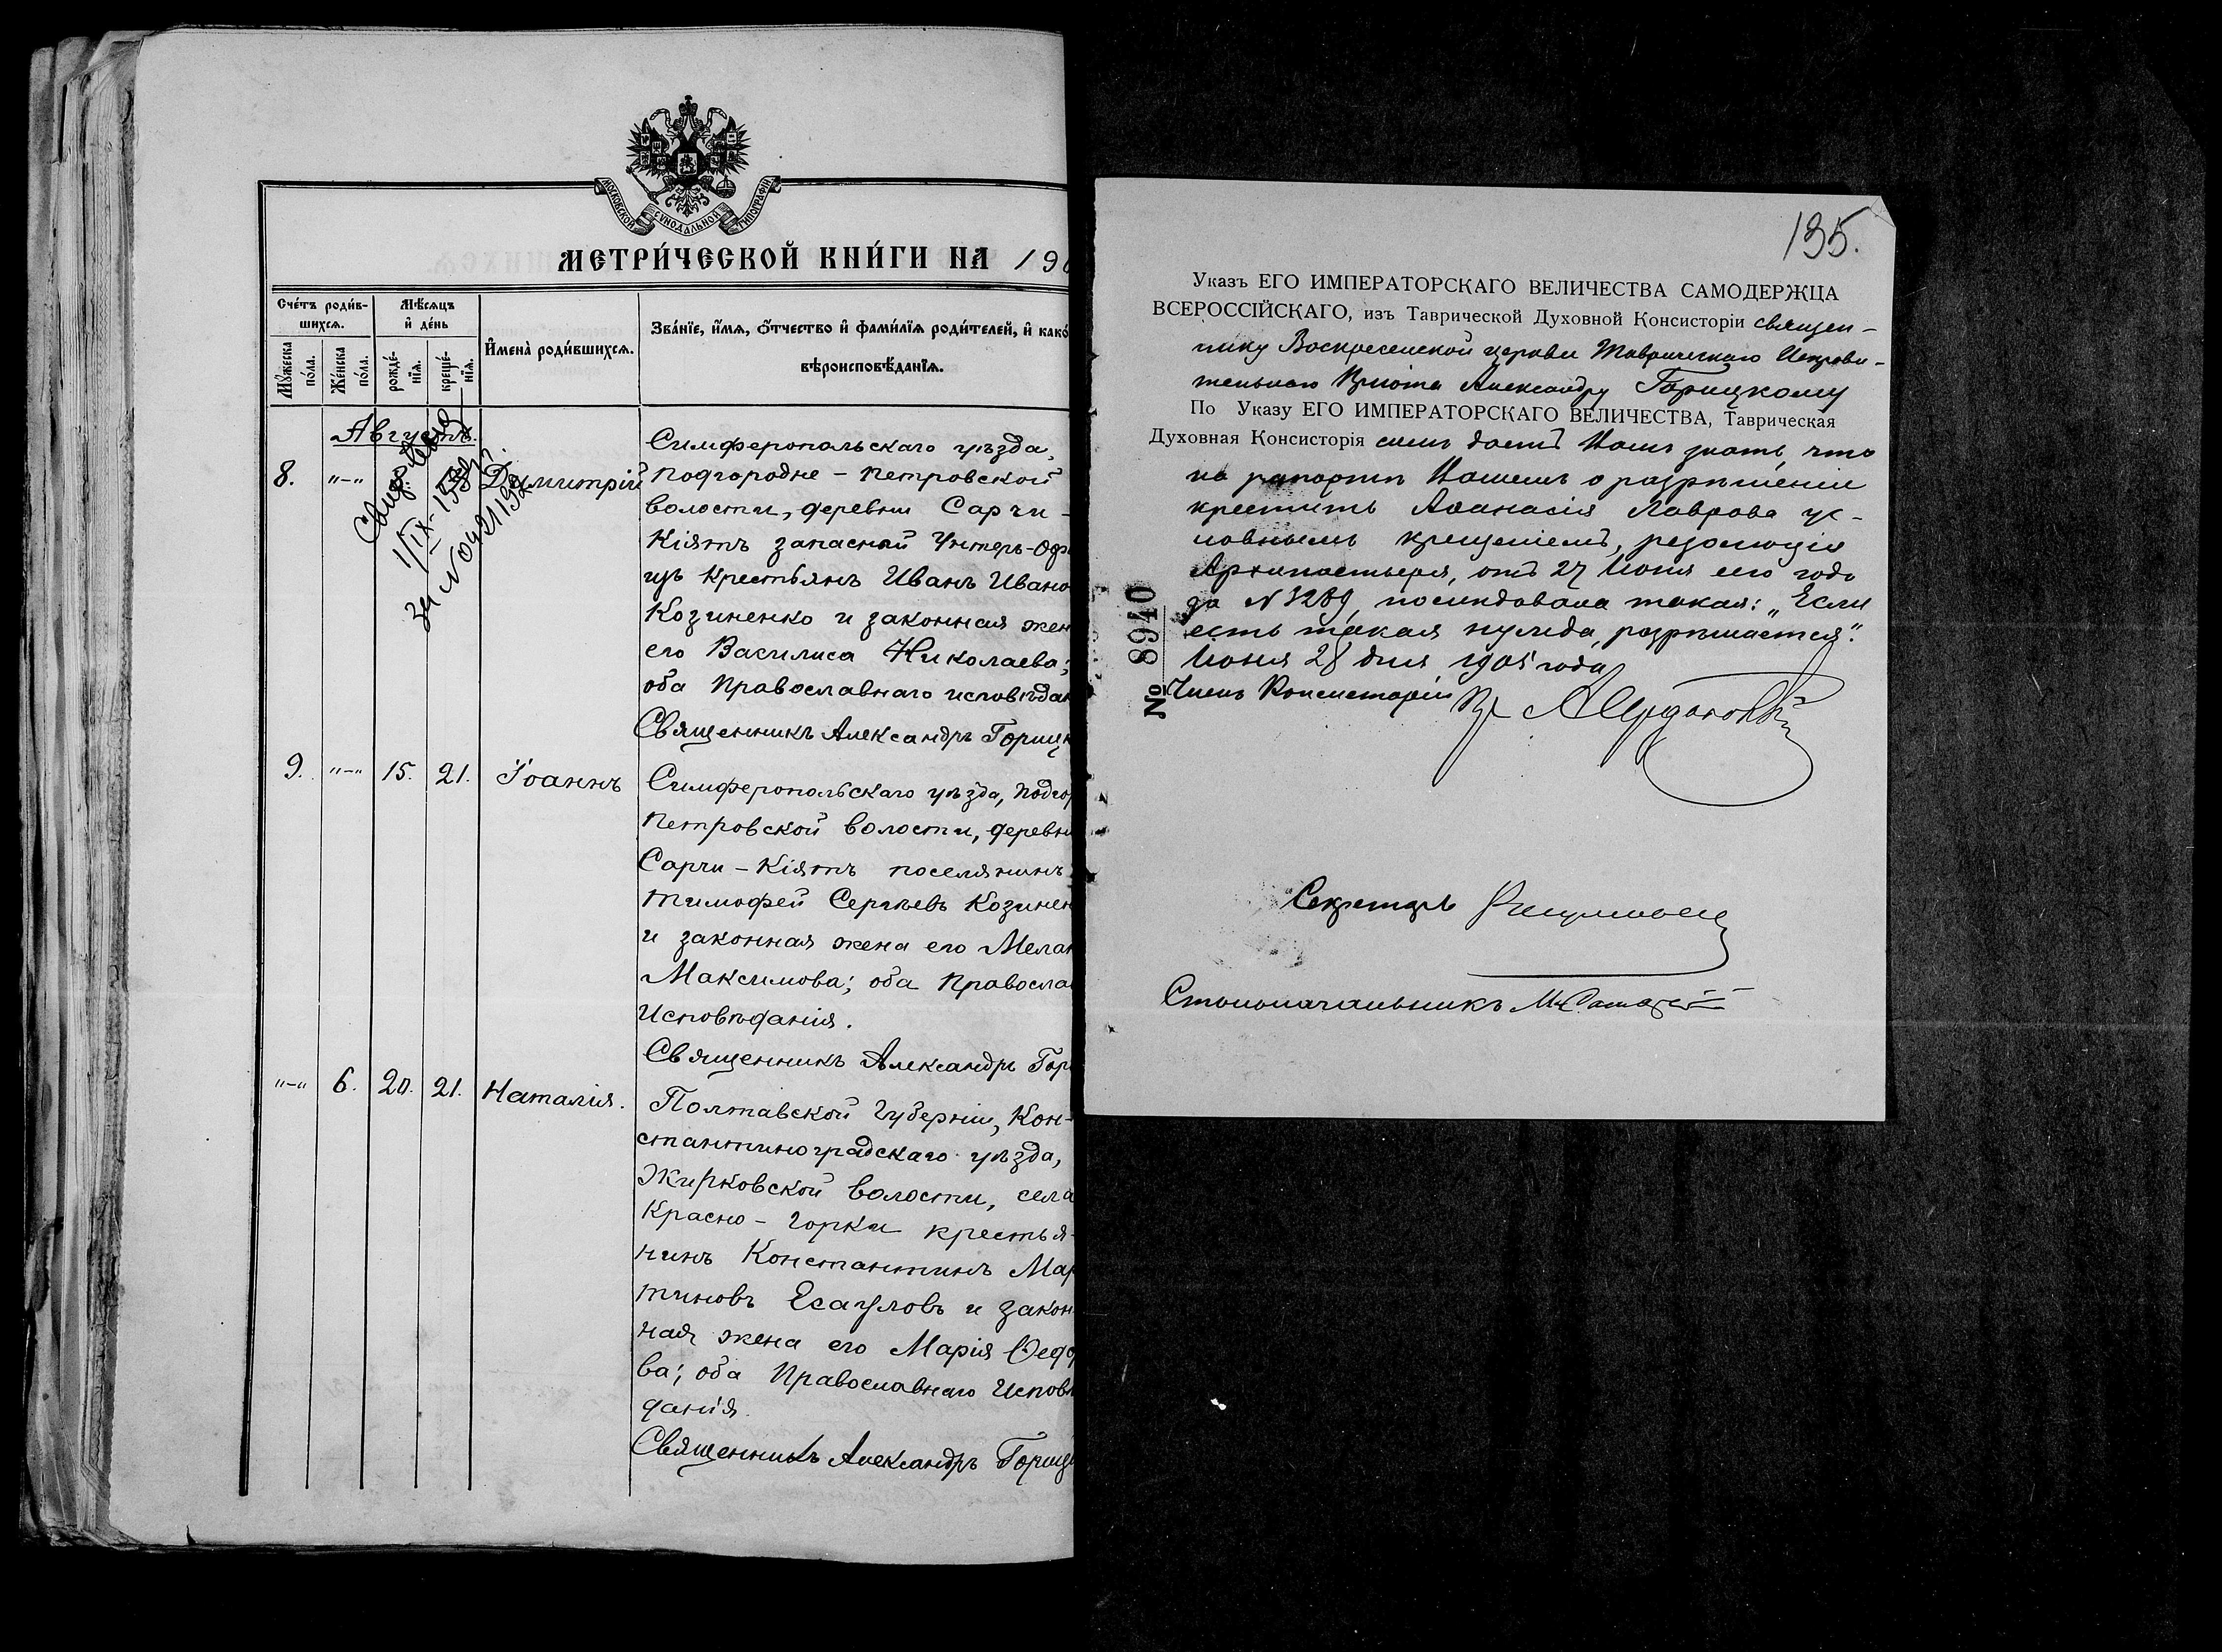 МОСКОВСКОЙ СѴНОДАЛЬНОЙ ТИПОГРАФІИ
МЕТРИ́ЧЕСКОЙ КНИ́ГИ НА 190
Сче́тъ роди́в-
шихсѧ.
Мѣ́сѧцъ
и҆ де́нь
И҆мена̀ роди́вшихсѧ.
Зва́нїе, и҆́мѧ, ѻ҆́тчество и҆ фами́лїѧ роди́телей, и҆ како́
вѣроисповѣ́данїѧ.
Мꙋ́жеска
по́ла.
Же́нска
по́ла.
рожде́-
нїѧ.
креще́-
нїѧ.
Августъ.
8. "–" Димитрій
Симферопольскаго уѣзда,
Подгородне – Петровской
волости, деревни Сарчи –
Кіятъ запасный Унтеръ-Оф
изъ Крестьянъ Иванъ Ивано
Козиненко и законная жен
его Василиса Николаева;
оба Православнаго исповѣдан
Священникъ Александръ Гориц
9. "–" 15. 21. Іоаннъ
Симферопольскаго уѣзда, Подгор
Петровской волости, деревн
Сарчи – Кіятъ поселянинъ
Тимофей Сергѣевъ Козинен
и законная жена его Мелан
Максимова; оба Правосла
Исповѣданія.
Священникъ Александръ Гор
"–" 6. 20. 21. Наталія.
Полтавской Губерніи, Кон-
стантиноградскаго уѣзда,
Жирковской волости, села
Красно – Горки крестья-
нинъ Константинъ Мар
тиновъ Есауловъ и закон
ная жена его Марія Ѳедо
ва; оба Православнаго Исповѣ
данія.
Священникъ Александръ Гориц
135.
Указъ ЕГО ИМПЕРАТОРСКАГО ВЕЛИЧЕСТВА САМОДЕРЖЦА
ВСЕРОССІЙСКАГО, изъ Таврической Духовной Консисторіи священ-
нику Воскресенской церкви Таврическаго Исправи-
тельнаго Пріюта Александру Горицкому
По Указу ЕГО ИМПЕРАТОРСКАГО ВЕЛИЧЕСТВА, Таврическая
Духовная Консисторія симъ даетъ Вамъ знать, что
на рапортѣ Вашемъ о разрѣшеніи
крестить Аѳанасія Лаврова ус-
ловнымъ крещеніемъ, резолюція
Архипастыря, отъ 27 Іюня сего года
за № 3289, послѣдовала такая: „Если
есть такая нужда, разрѣшается".
Іюня 28 дня 1905 года
Членъ Консисторіи
№ 8940
Секретарь
Столоначальникъ